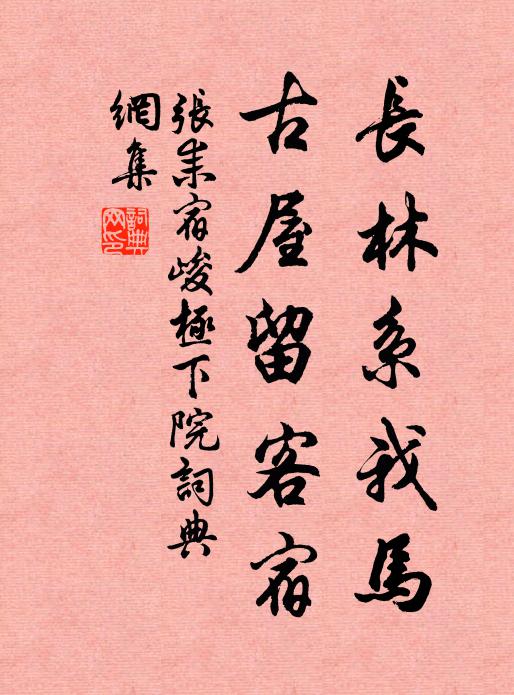 長林系我馬
古屋留客宿
張耒宿峻極下院詞典
網集
詞典
网印